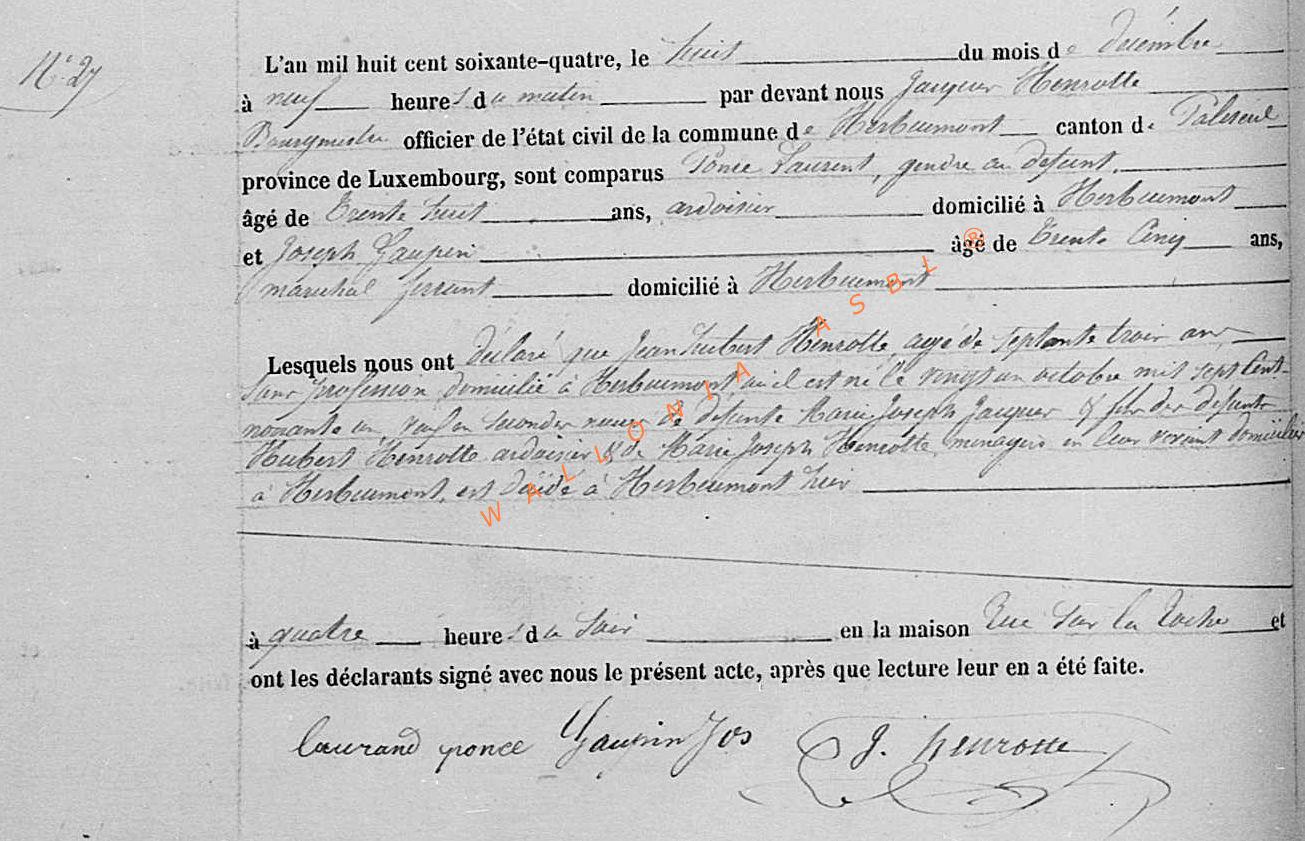 N° 27
L'an mil huit cent soixante-quatre, le huit du mois de décembre
à neuf heures du matin par devant nous Jacques Henrotte
Bourgmestre officier de l'état civil de la commune de Herbeumont canton de Paliseul
province de Luxembourg, sont comparus Ponce Laurent, gendre au defunt,
âgé de trente huit ans, ardoisier domicilié à Herbeumont
et Joseph Gaupin âgé de trente cinq ans,
maréchal ferrant domicilié à Herbeumont
Lesquels nous ont déclaré que Jean hubert Henrotte, agé de septante trois ans
sans profession domicilié à Herbeumont où il est né le vingt un octobre mil sept cent
nonante un, veuf en secondes noces de défunte Marie Joseph Jacques & fils des défunts
Hubert Henrotte ardoisier & de Marie Joseph Henrotte, menagère en leur vivant domiciliés
à Herbeumont, est décédé à Herbeumont hier
à quatre heures du soir en la maison Rue sur la Roche et
ont les déclarants signé avec nous le présent acte, après que lecture leur en a été faite.
laurand ponce Gaupin Jos J. henrotte
WALLONIA ASBL ®